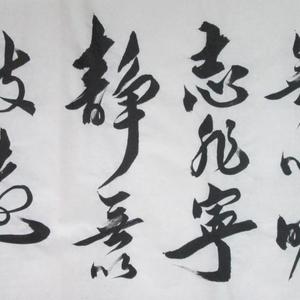 無以明
志非寧
静無以
致遠